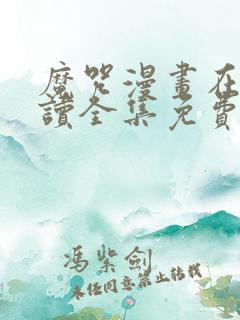 魔咒漫畫在
讀全集免費
馮紫劍
未经同意禁止转载